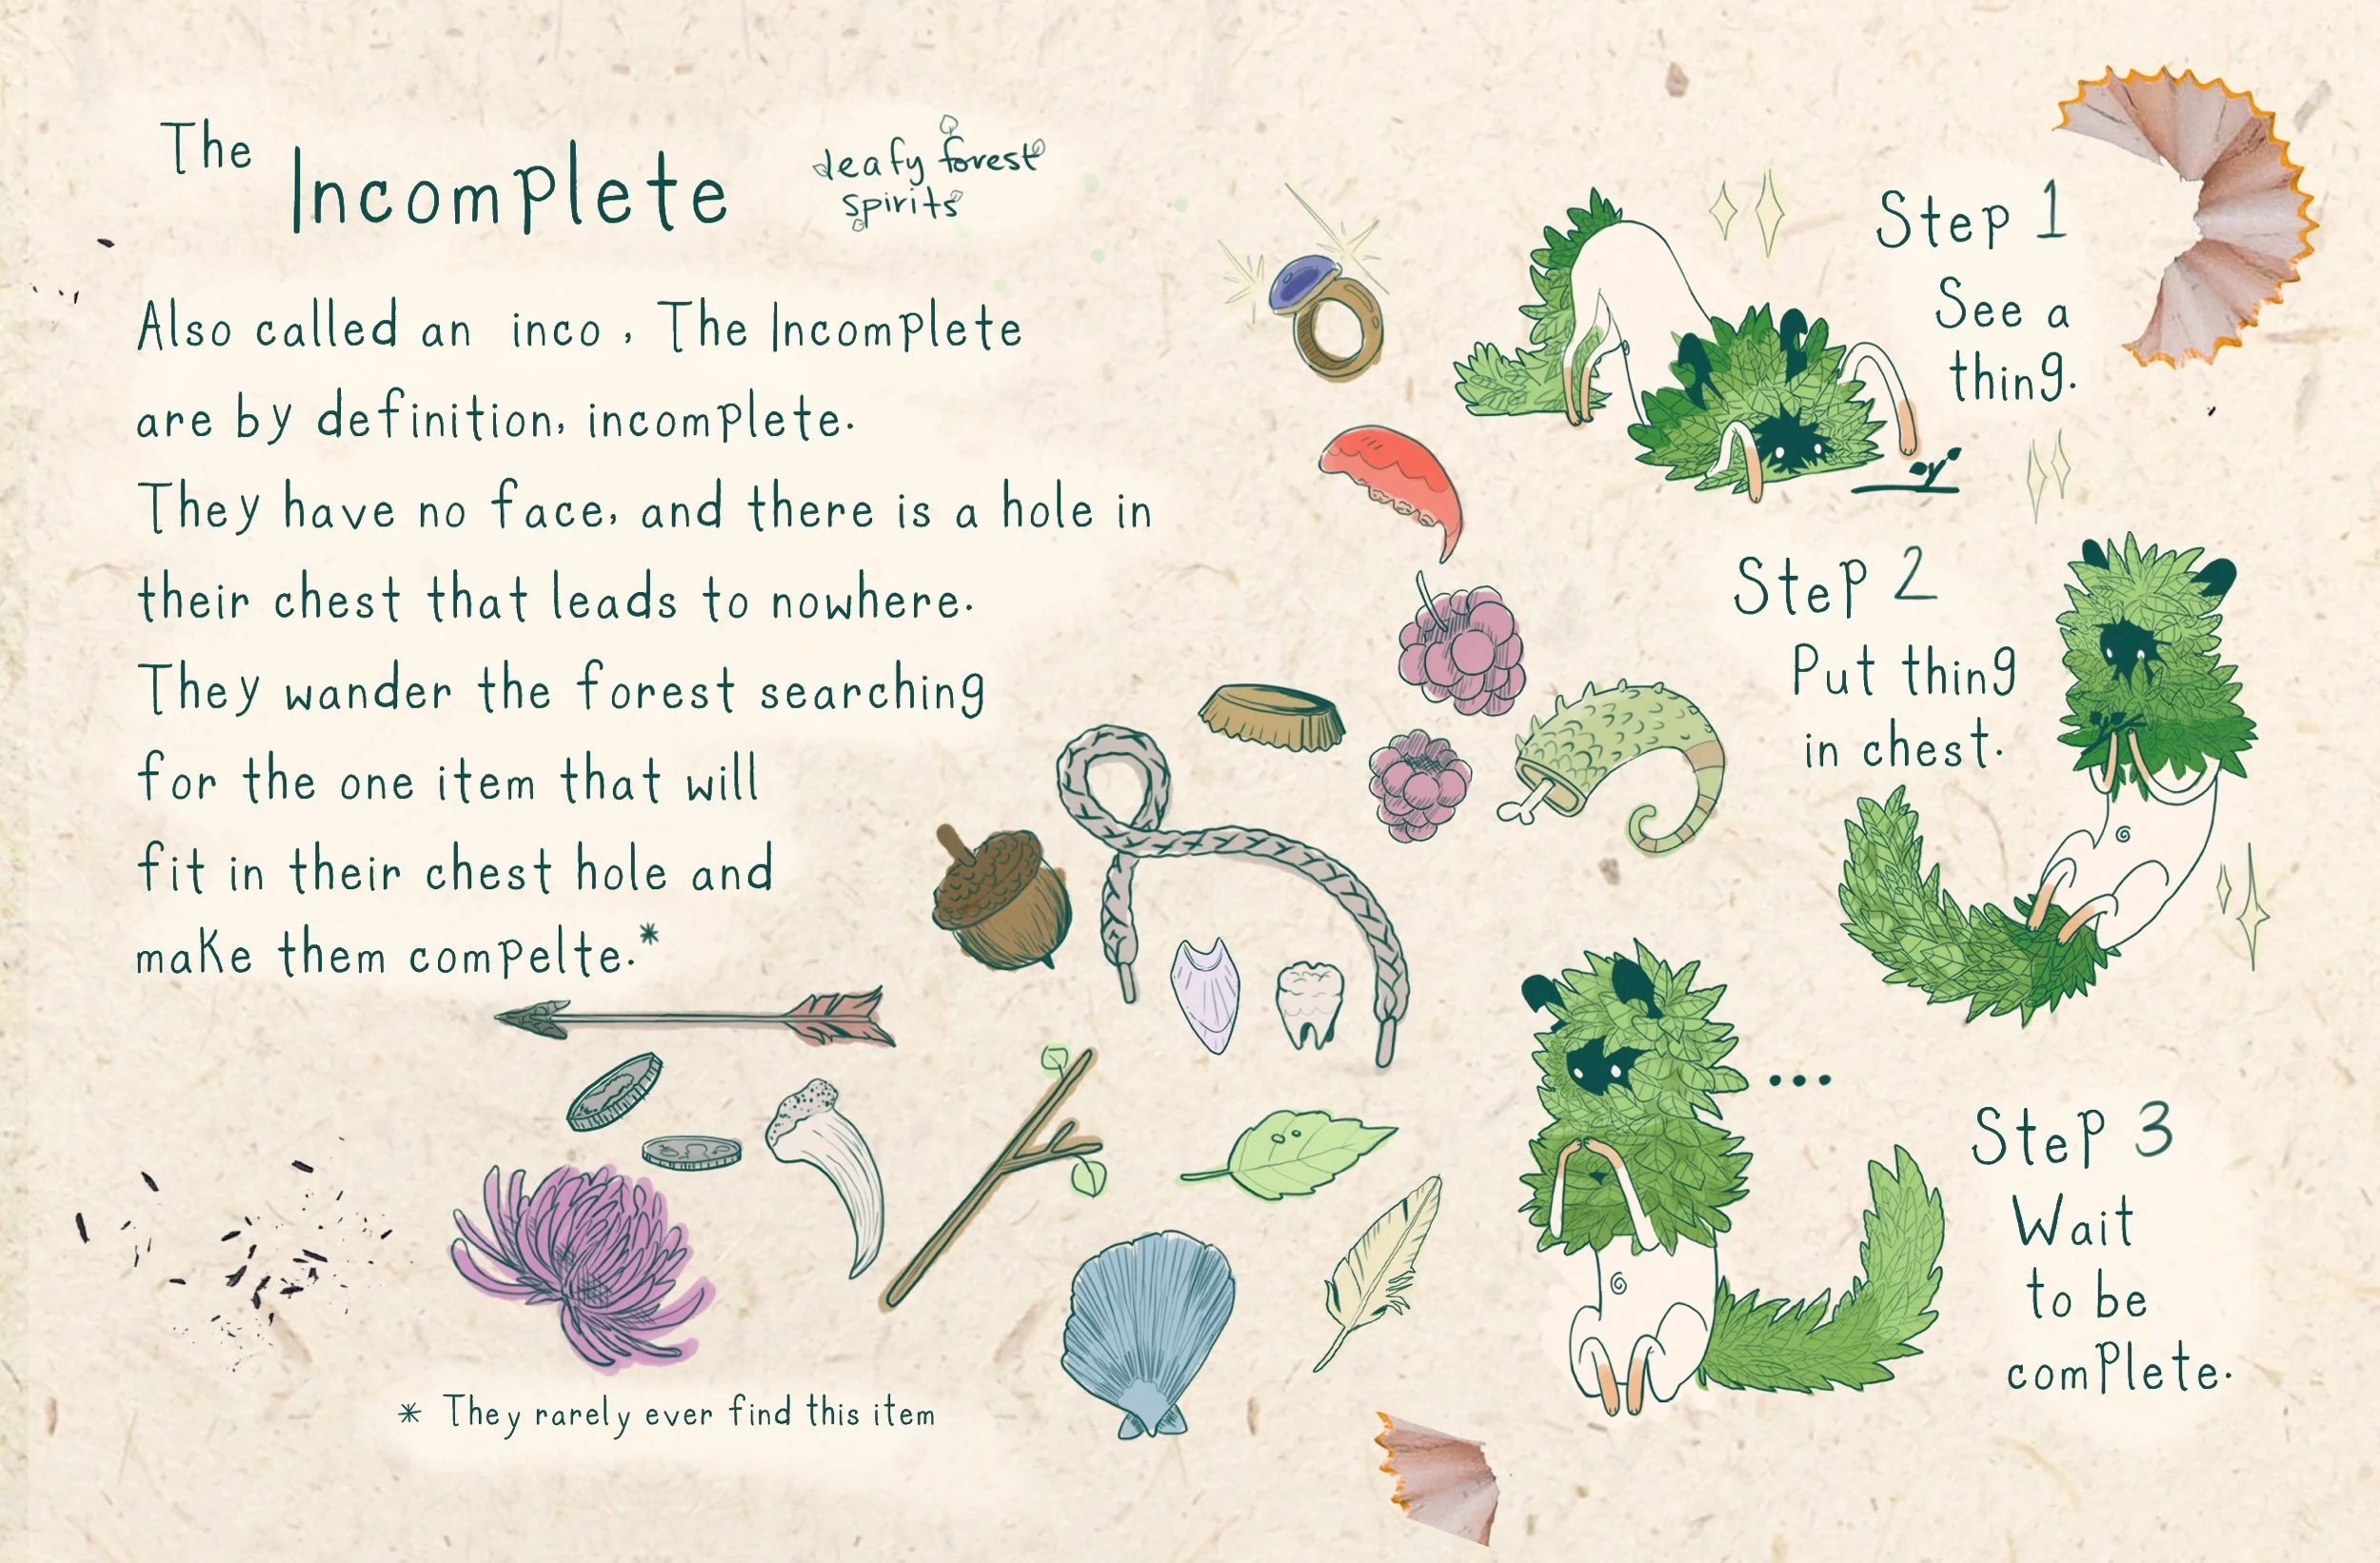 The Incomplete
leafy forest
spirits
Also called an inco, The Incomplete
are by definition, incomplete.
They have no face, and there is a hole in
their chest that leads to nowhere.
They wander the forest searching
for the one item that will
fit in their chest hole and
make them compelte.*
* They rarely ever find this item
Step 1
See a
thing.
Step 2
Put thing
in chest.
...
Step 3
Wait
to be
complete.